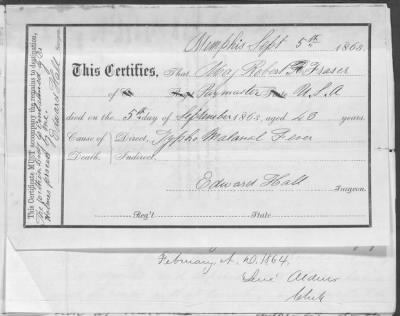 Memphis Sept 5th 1863.
This Certifies, That Maj Robert Fraser
of Paymaster U.S.A
died on the 5th day of September 1863, aged 40 years.
Cause of Direct, Typho Malarial Fever
Death. Indirect,
Edward Hall Surgeon.
Reg't State
This Certificate MUST accompany the remains to destination,
Edward Hall
Surgeon.
February A.D. 1864,
Clerk